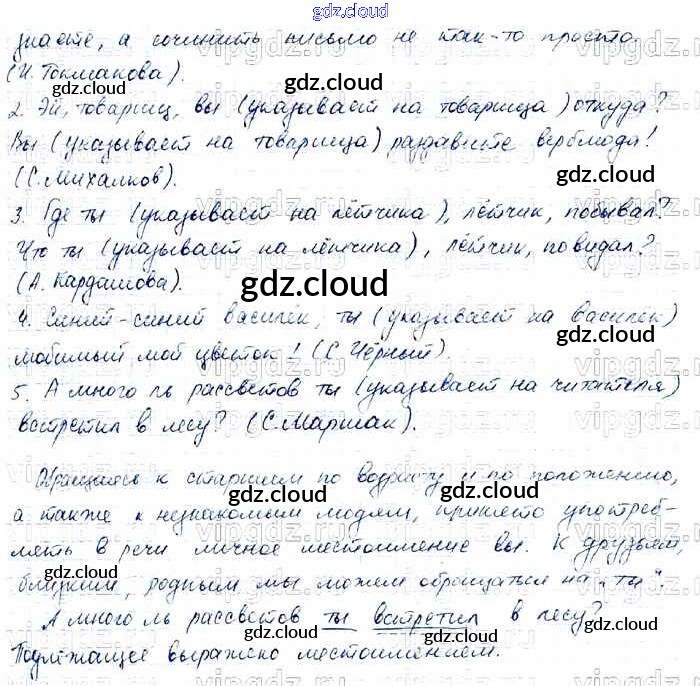 gdz.cloud
знаете, а сочинить письмо не так-то просто.
(И. Токмакова).
2. Эй, товарищ, вы (указывает на товарища) откуда?
Вы (указывает на товарища) раздавите верблюда!
(С. Михалков).
3. Где ты (указывает на лётчика), лётчик, побывал?
Что ты (указывает на лётчика), лётчик, повидал?
(А. Кардашова).
4. Синий-синий василёк, ты (указывает на василёк)
любимый мой цветок! (С. Чёрный).
5. А много ль рассветов ты (указывает на читателя)
встретил в лесу? (С. Маршак).
Обращаясь к старшим по возрасту и по положению,
а также к незнакомым людям, принято употреб-
лять в речи личное местоимение вы. К друзьям,
близким, родным мы можем обращаться на „ты".
А много ль рассветов ты встретил в лесу?
Подлежащее выражено местоимением.